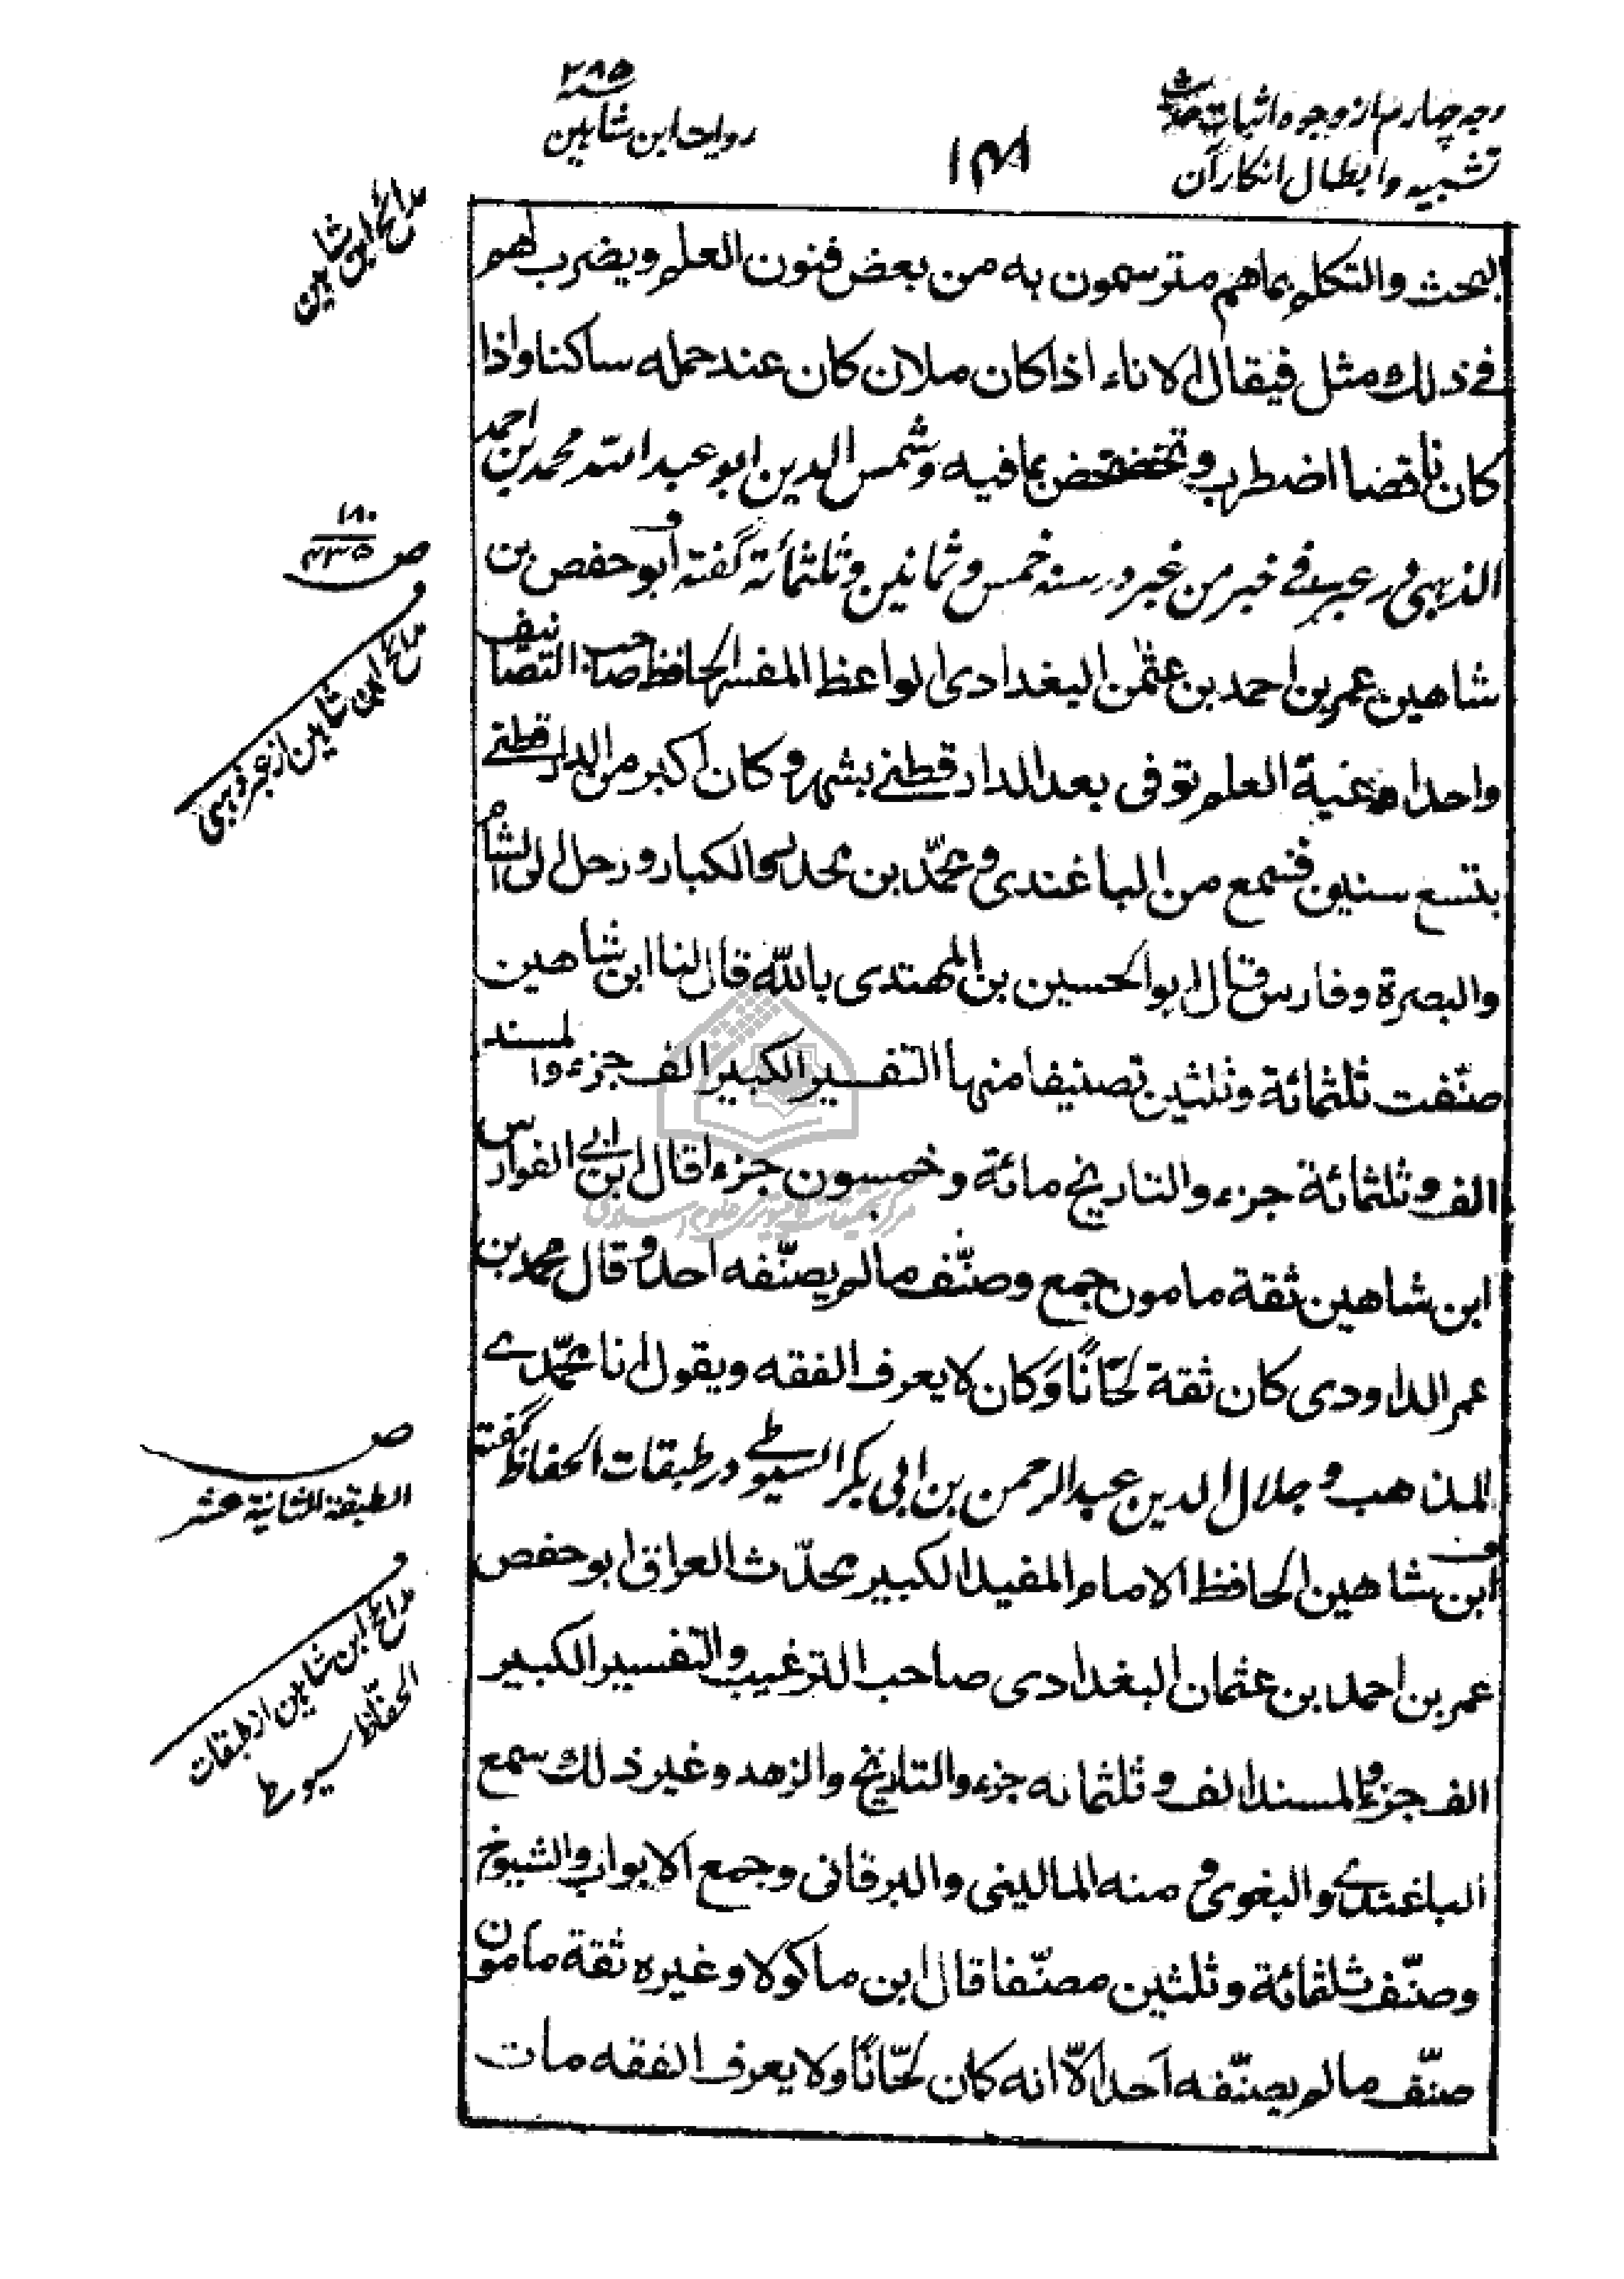 وجه چهارم از وجوه اثبات حدیث
تشبیه و ابطال انکار آن
۱۳۸
۲۸۵
روایت ابن شاهین
البحث والتکلم بماهم مترسمون به من بعض فنون العلم ویضرب لهم
فی ذلک مثل فیقال الاناء اذا کان ملان کان عند حمله ساکنا واذا
کان ناقصا اضطرب وتخضخض بمافیه و شمس الدین ابو عبد الله محمد بن احمد
الذهبی در عبر فی خبر من غبر در سنه خمس و ثمانین و ثلثمائة گفته و ابو حفص بن
شاهین عمر بن احمد بن عثمن البغدادی الواعظ المفسر الحافظ صاحب التصانیف
واحد اوعیة العلم توفی بعد الدارقطنی بشهر و کان اکبر من الدارقطنی
بتسع سنین فسمع من الباغندی و محمّد بن المجدر والکبار و رحل الی الشام
والبصرة وفارس قال ابو الحسین بن المهتدی بالله قال لنا ابن شاهین
صنّفت ثلثمائة وثلثین تصنیفا منها التفسیر الکبیر الف جزء والمسند
الف وثلثمائة جزء والتاریخ مائة وخمسون جزءا قال ابن ابی الفوارس
ابن شاهین ثقة مامون جمع وصنّف مالم یصنّفه احد وقال محمد بن
عمر الداودی کان ثقة لحّانًا وَکان لا یعرف الفقه ویقول انا محمّدی
المذهب و جلال الدین عبد الرحمن بن ابی بکر السیوطی در طبقات الحفاظ گفته
ابن شاهین الحافظ الامام المفید الکبیر محدّث العراق ابو حفص
عمر بن احمد بن عثمان البغدادی صاحب الترغیب والتفسیر الکبیر
الف جزء والمسند الف وثلثمائه جزء والتاریخ والزهد وغیر ذلک سمع
الباغندی والبغوی و منه المالینی والبرقانی وجمع الابواب والشیوخ
وصنّف ثلثمائة وثلثین مصنّفا قال ابن ماکولا وغیره ثقة مامون
صنّف مالم یصنّفه اَحد الّا انه کان لحّانًا ولا یعرف الفقه مات
مدائح ابن شاهین
ص ۱۸۰
۴۳۵
و
مدائح ابن شاهین از عبر ذهبی
ص
الطبقة الثانیة عشر
و
مدائح ابن شاهین از طبقات
الحفّاظ سیوطی